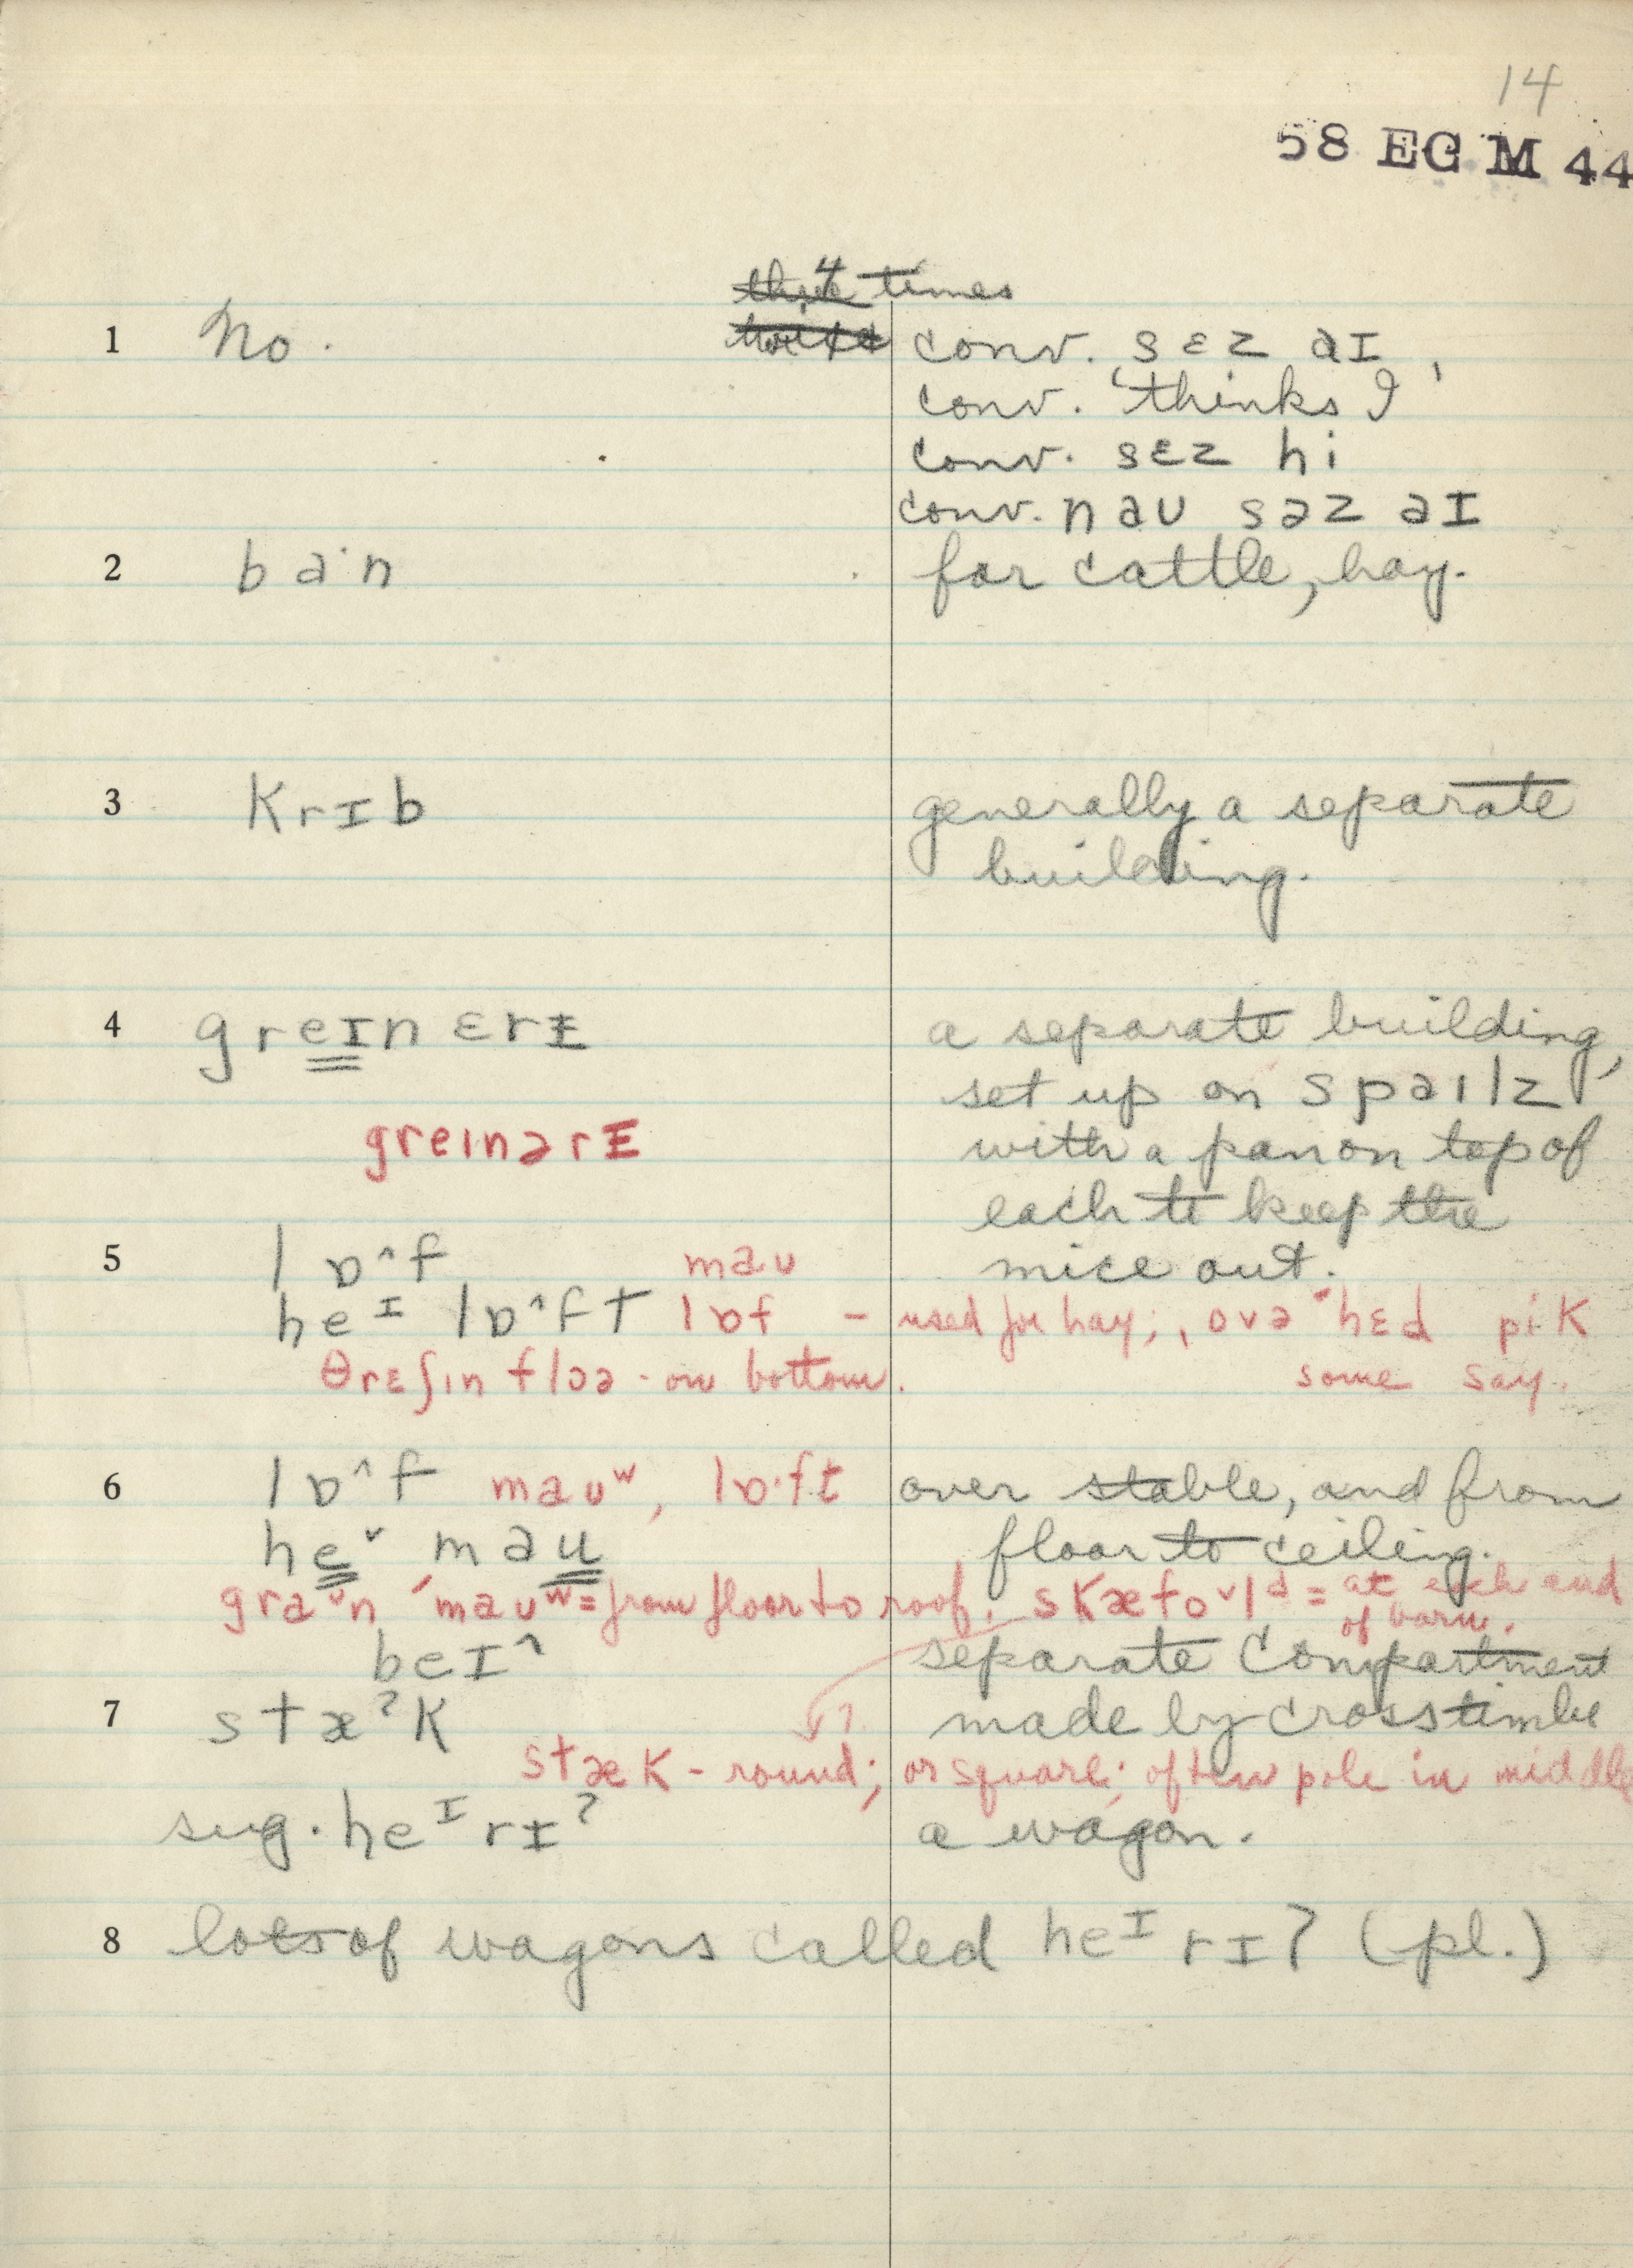 14
58 EG M 44
4 times
1 No. conv. sɛz aɪ,
conv. 'thinks I'
conv. sɛz hi
conv. naʊ səz aɪ
2 ba·n for cattle, hay.
3 Krɪb generally a separate
building.
4 greɪnɛrɪ a separate building,
set up on spaɪlz
greɪnərɪ with a pan on top of
each to keep the
5 lɒ^f maʊ mice out.
heᴵ lɒ^ft lɒf – used for hay; ˌovəˈhɛd pi·K
θrɛʃɪn flɔə - on bottom. some say.
6 lɒ^f maʊʷ, lɒ·ft over stable, and from
heˇ maʊ floor to ceiling.
graˇn ˈmaʊʷ = from floor to roof. sKæfoˇld = at each end
of barn.
beɪ^ separate compartment
7 stæˀK made by cross timbe
stæK – round; or square; often pole in middle
sug. heᴵrɪˀ a wagon.
8 lots of wagons called heᴵrɪ? (pl.)